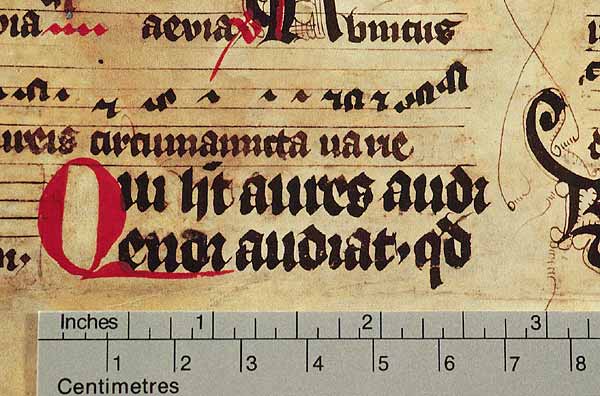 aevia Abintus
ureis circumamicta uarie
Qui ht aures audi
endi audiat, qd
Inches 1 2 3
1 2 3 4 5 6 7 8
Centimetres